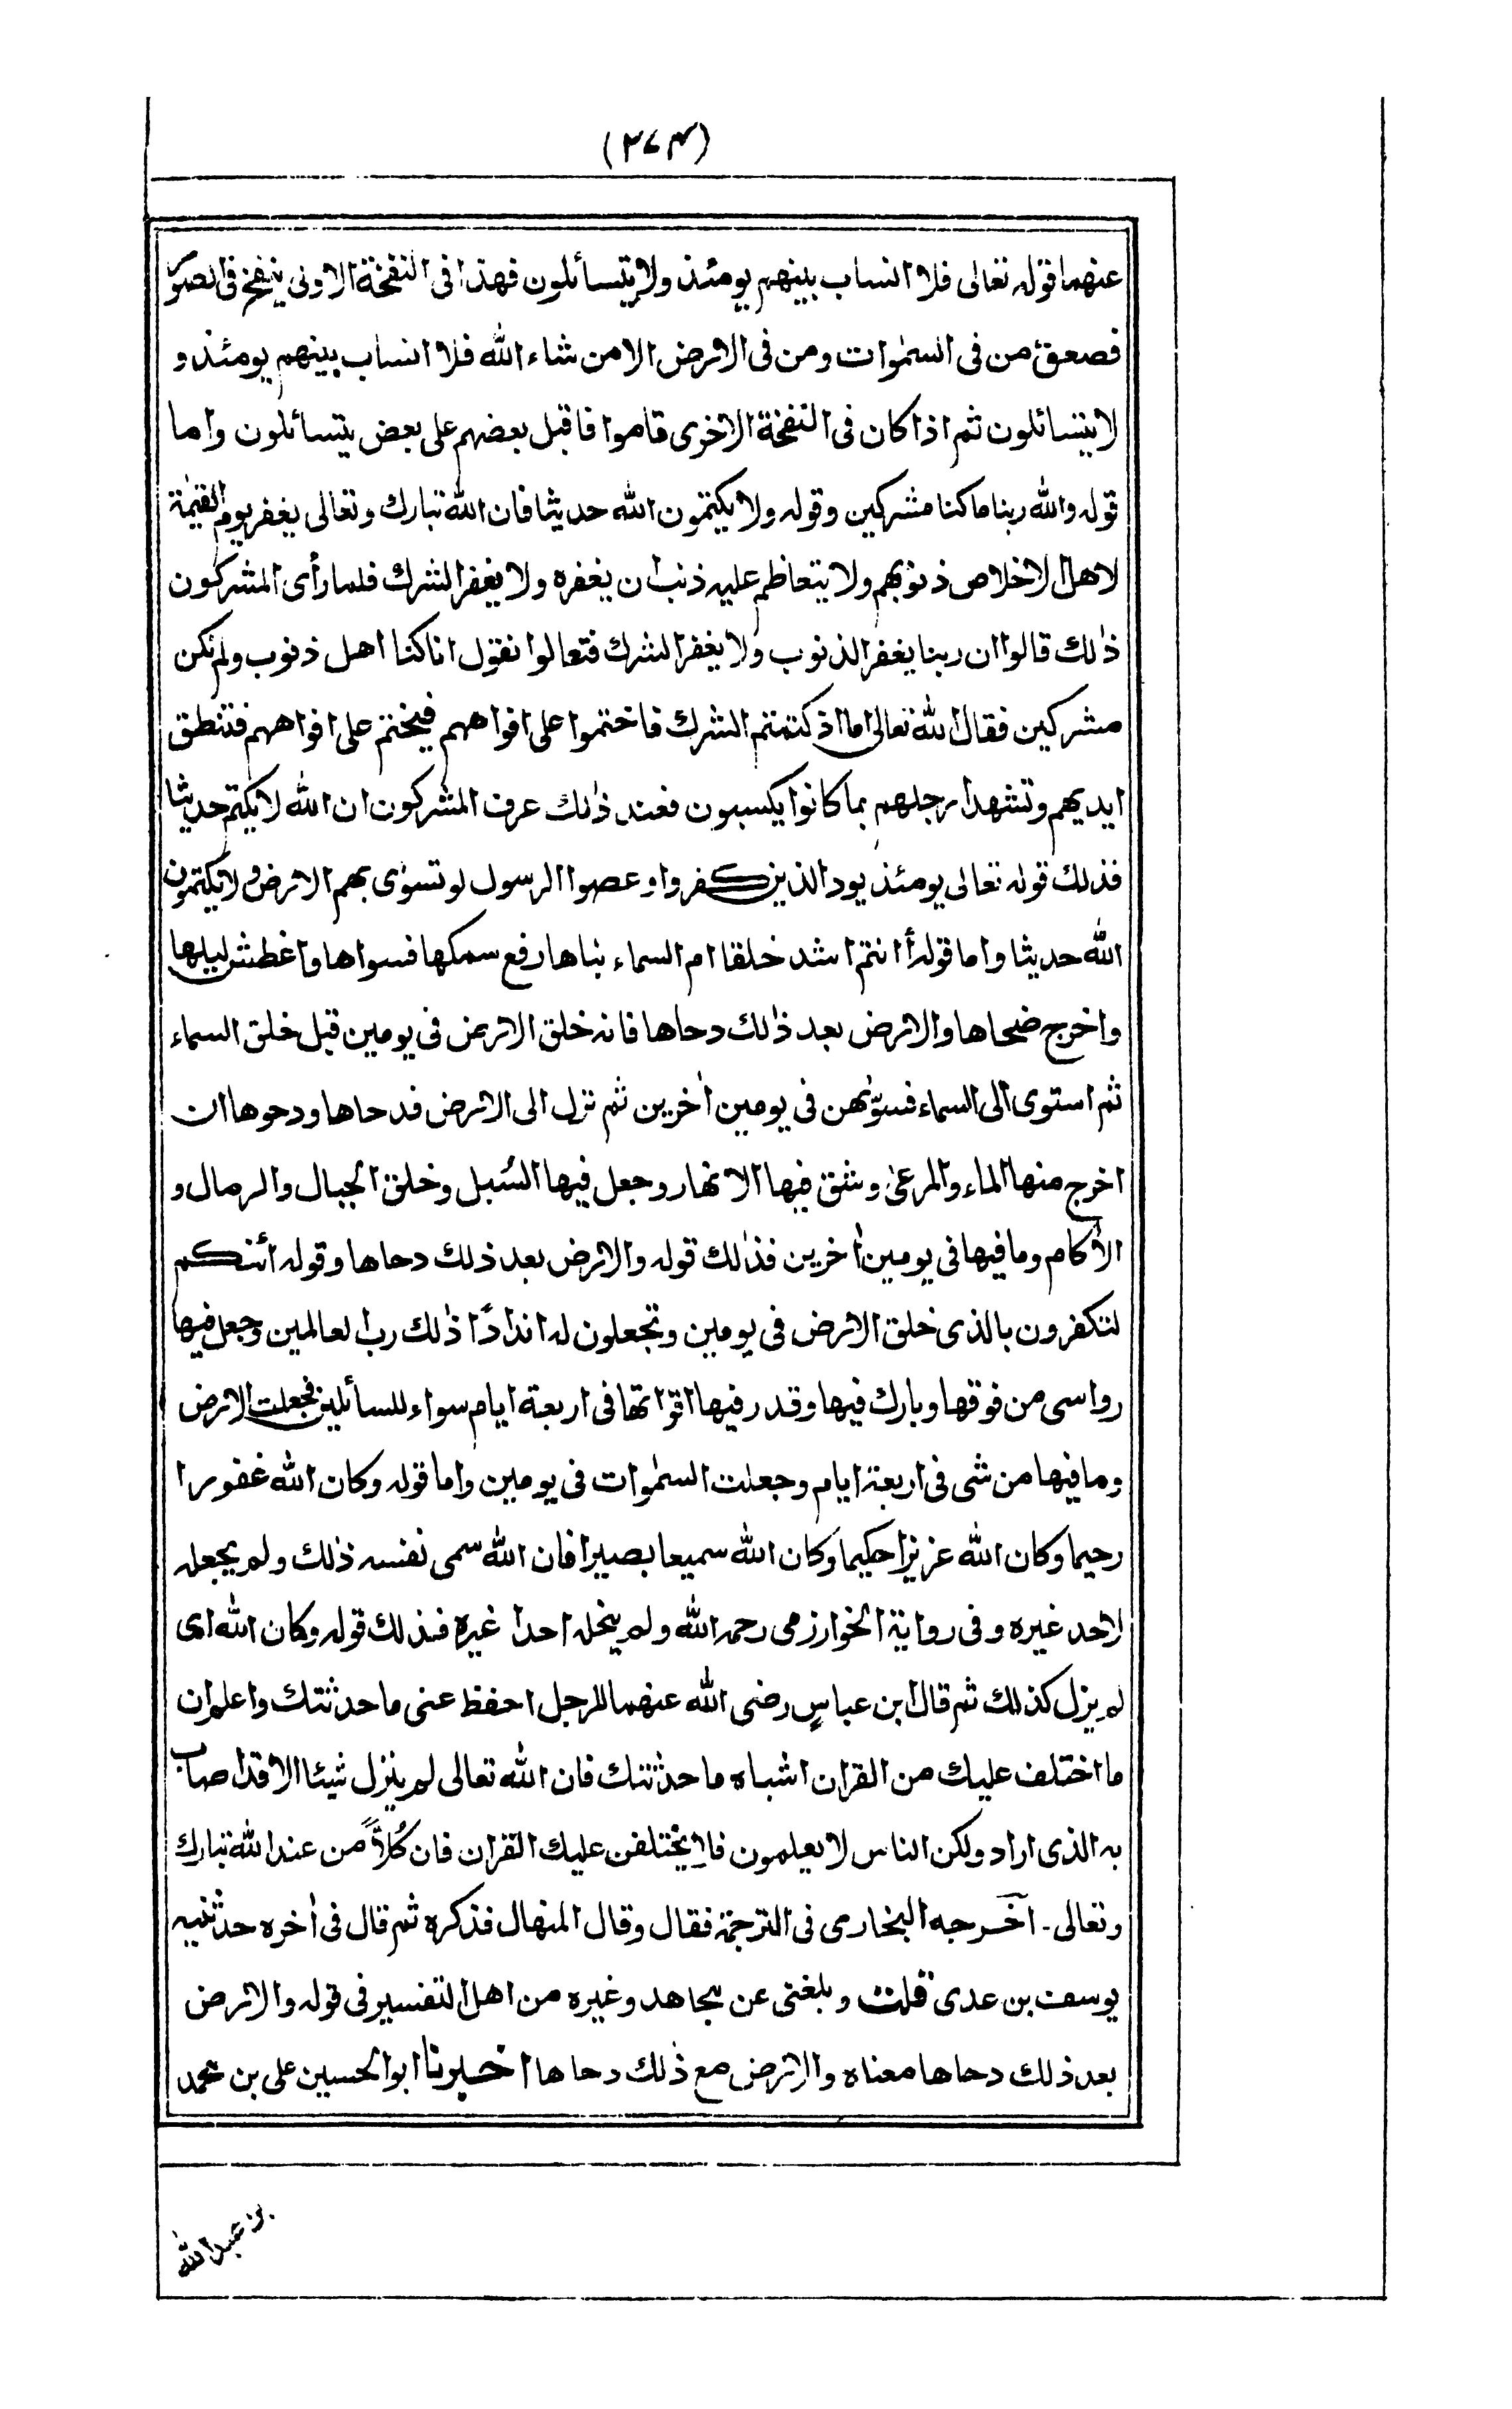 (٢٧٤)
عنهما قوله تعالى فلا انساب بينهم يومئذ ولا يتسائلون فهذا فى النفخة الاولى ينفخ فى الصور
فصعق من فى السمٰوات ومن فى الارض الا من شاء الله فلا انساب بينهم يومئذ و
لا يتسائلون ثم اذا كان فى النفخة الاخرى قاموا فاقبل بعضهم على بعض يتسائلون واما
قوله والله ربنا ما كنا مشركين وقوله ولا يكتمون الله حديثا فان الله تبارك وتعالى يغفر يوم القيٰمة
لاهل الاخلاص ذنوبهم ولا يتعاظم عليه ذنب ان يغفره ولا يغفر الشرك فلما رأى المشركون
ذٰلك قالوا ان ربنا يغفر الذنوب ولا يغفر الشرك فتعالوا نقول انا كنا اهل ذنوب ولم نكن
مشركين فقال الله تعالى اما اذ كتمتم الشرك فاختموا على افواههم فيختم على افواههم فتنطق
ايديهم وتشهد ارجلهم بما كانوا يكسبون فعند ذٰلك عرف المشركون ان الله لا يكتم حديثا
فذلك قوله تعالى يومئذ يود الذين كفروا وعصوا الرسول لو تسوٰى بهم الارض ولا يكتمون
الله حديثا واما قوله أانتم اشد خلقا ام السماء بناها رفع سمكها فسواها واغطش ليلها
واخرج ضحاها والارض بعد ذٰلك دحاها فانه خلق الارض فى يومين قبل خلق السماء
ثم استوى الى السماء فسوّٰهن فى يومين اٰخرين ثم نزل الى الارض فدحاها ودحوها ان
اخرج منها الماء والمرعىٰ وشق فيها الانهار وجعل فيها السُبل وخلق الجبال والرمال و
الأكام وما فيها فى يومين اٰخرين فذٰلك قوله والارض بعد ذلك دحاها وقوله ائنكم
لتكفرون بالذى خلق الارض فى يومين وتجعلون له اندادًا ذٰلك رب العالمين وجعل فيها
رواسى من فوقها وبارك فيها وقدر فيها اقواتها فى اربعة ايام سواء للسائلين فجعلت الارض
وما فيها من شى فى اربعة ايام وجعلت السمٰوات فى يومين واما قوله وكان الله غفورا
رحيما وكان الله عزيزا حكيما وكان الله سميعا بصيرا فان الله سمى نفسه ذٰلك ولم يجعله
لاحد غيره وفى رواية الخوارزمى رحمه الله ولم ينحله احدا غيره فذلك قوله وكان الله اى
لم يزل كذلك ثم قال ابن عباسٍ رضى الله عنهما للرجل احفظ عنى ما حدثتك واعلم ان
ما اختلف عليك من القران اشباه ما حدثتك فان الله تعالى لم ينزل شيئا الا قد اصاب
به الذى اراد ولكن الناس لا يعلمون فلا يختلفن عليك القران فان كُلاًّ من عند الله تبارك
وتعالى - اخرجه البخارى فى الترجمة فقال وقال المنهال فذكره ثم قال فى اٰخره حدثنيه
يوسف بن عدى قلت وبلغنى عن مجاهد وغيره من اهل التفسير فى قوله والارض
بعد ذلك دحاها معناه والارض مع ذٰلك دحاها اخبرنا ابو الحسين على بن محمد
بن عبد الله